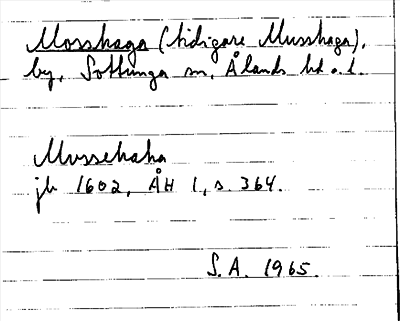 Mosshaga (tidigare Musshaga),
by, Sottunga sn, Ålands hd o. l.
Mussehaka
jb 1602, ÅH 1, s. 364.
S.A. 1965.